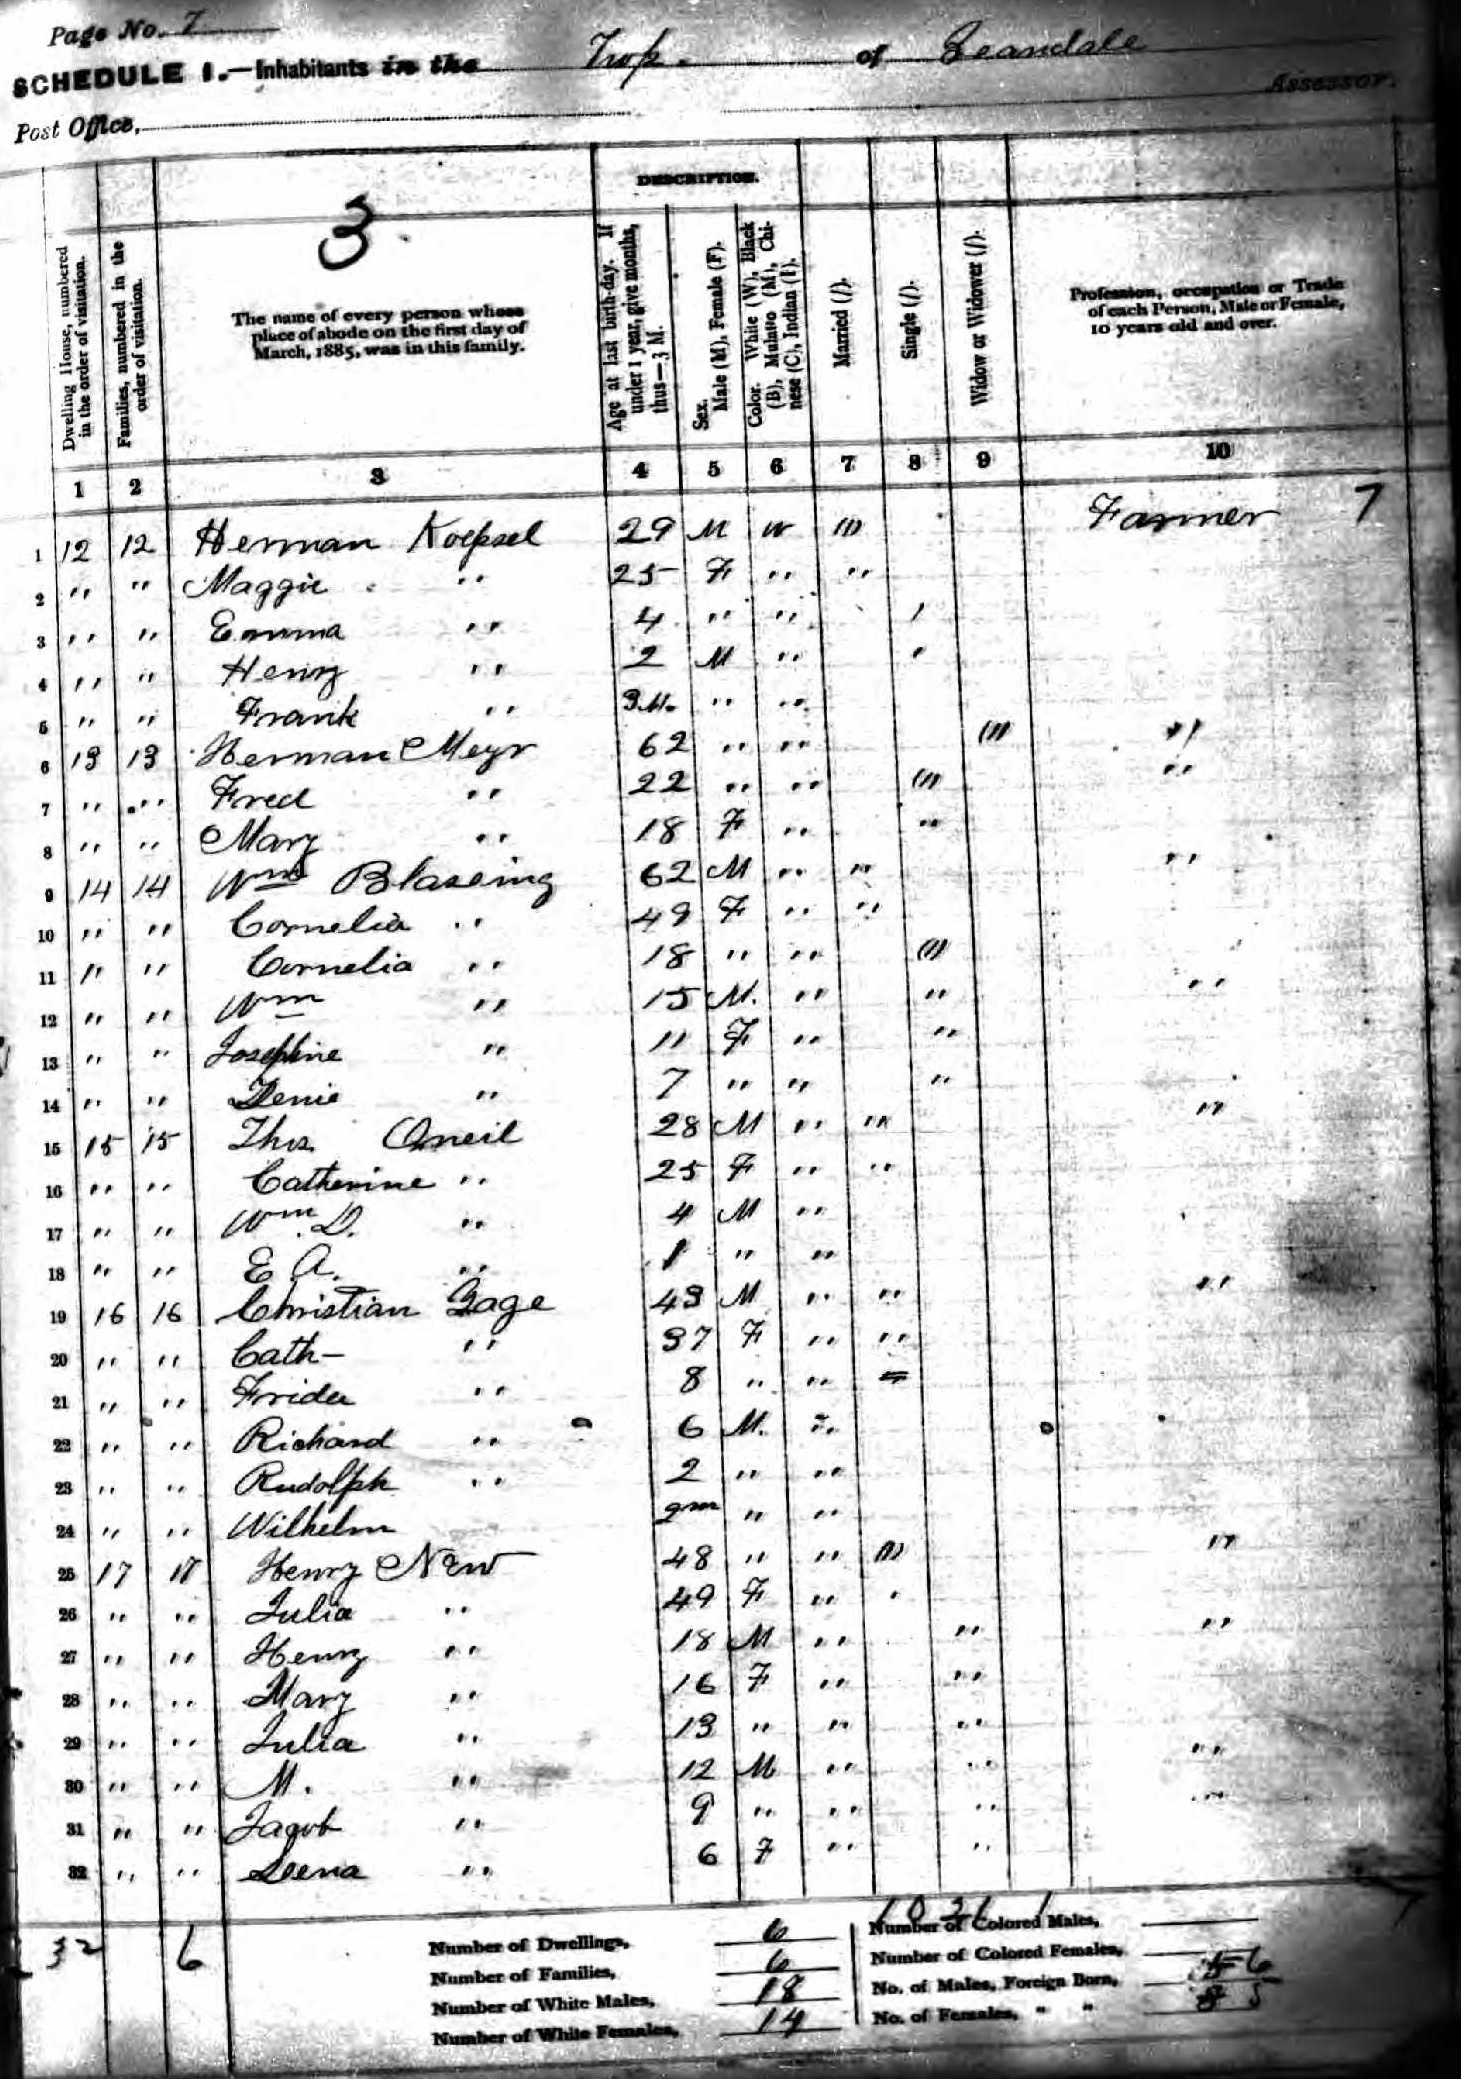 Page No. 7
SCHEDULE 1.—Inhabitants in the Twp. of Zeandale
Assessor.
Post Office,
3
DESCRIPTION.
Dwelling House, numbered in the order of visitation.
Families, numbered in the order of visitation.
The name of every person whose place of abode on the first day of March, 1885, was in this family.
Age at last birth-day. If under 1 year, give months, thus—3 M.
Sex. Male (M), Female (F).
Color. White (W), Black (B), Mulatto (M), Chinese (C), Indian (I).
Married (/).
Single (/).
Widow or Widower (/).
Profession, occupation or Trade of each Person, Male or Female, 10 years old and over.
1 2 3 4 5 6 7 8 9 10
1 12 12 Herman Koepsel 29 M W (1) Farmer 7
2 " " Maggie " 25 F " "
3 " " Emma " 4 " " /
4 " " Henry " 2 M " '
5 " " Frank " 3M. " "
6 13 13 Herman Meyr 62 " " (1) "
7 " " Fred " 22 " " (1) "
8 " " Mary " 18 F " "
9 14 14 Wm Blaseing 62 M " " "
10 " " Cornelia " 49 F " "
11 " " Cornelia " 18 " " (1)
12 " " Wm " 15 M. " " "
13 " " Josephine " 11 F " "
14 " " " 7 " " "
15 15 15 Thos. Oneil 28 M " " "
16 " " Catherine " 25 F " "
17 " " Wm. D. " 4 M "
18 " " E A. " 1 " "
19 16 16 Christian Gage 43 M " " "
20 " " Cath- " 37 F " "
21 " " Frida " 8 " "
22 " " Richard " 6 M. "
23 " " Rudolph " 2 " "
24 " " Wilhelm " "
25 17 17 Henry New 48 " " (1) "
26 " " Julia " 49 F " '
27 " " Henry " 18 M " " "
28 " " Mary " 16 F " "
29 " " Julia " 13 " " "
30 " " M. " 12 M " " "
31 " " Jacob " 9 " " " "
32 " " Leena " 6 F " "
32 6
10 31 1
Number of Dwellings, 6
Number of Families, 6
Number of White Males, 18
Number of White Females, 14
Number of Colored Males,
Number of Colored Females,
No. of Males, Foreign Born, 6
No. of Females, " " 5